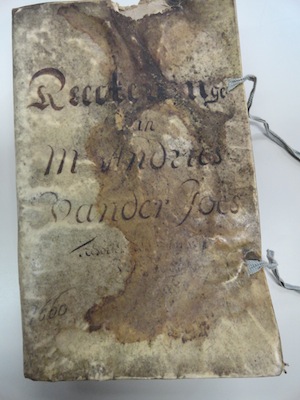 Reeckeninge
van
Mr Andries
Vander Goes
1660